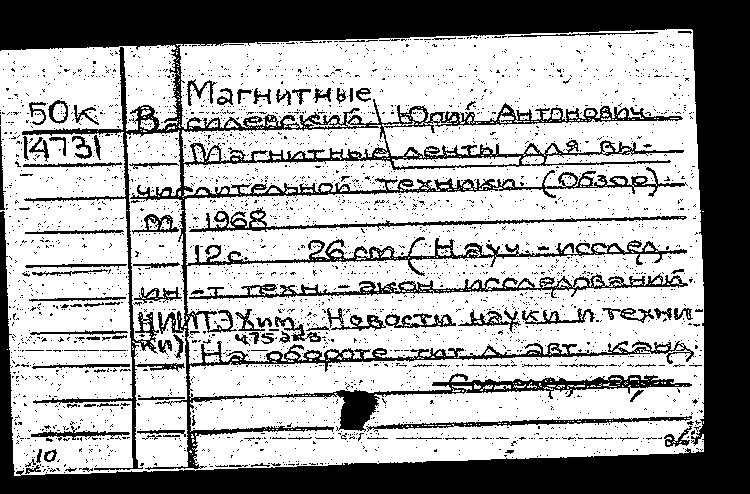 Магнитные
50к
14731
Василевский, Юрий Антонович
Магнитные ленты для вы-
числительной техники. (Обзор).
м, 1968
12 с. 26 см. (Науч.-исслед.
ин-т техн.-экон. исследований
НИИТЭХим, Новости науки и техни-
ки) 475 экз.
На обороте тит. л. авт.: канд.
См. след. карт.
10